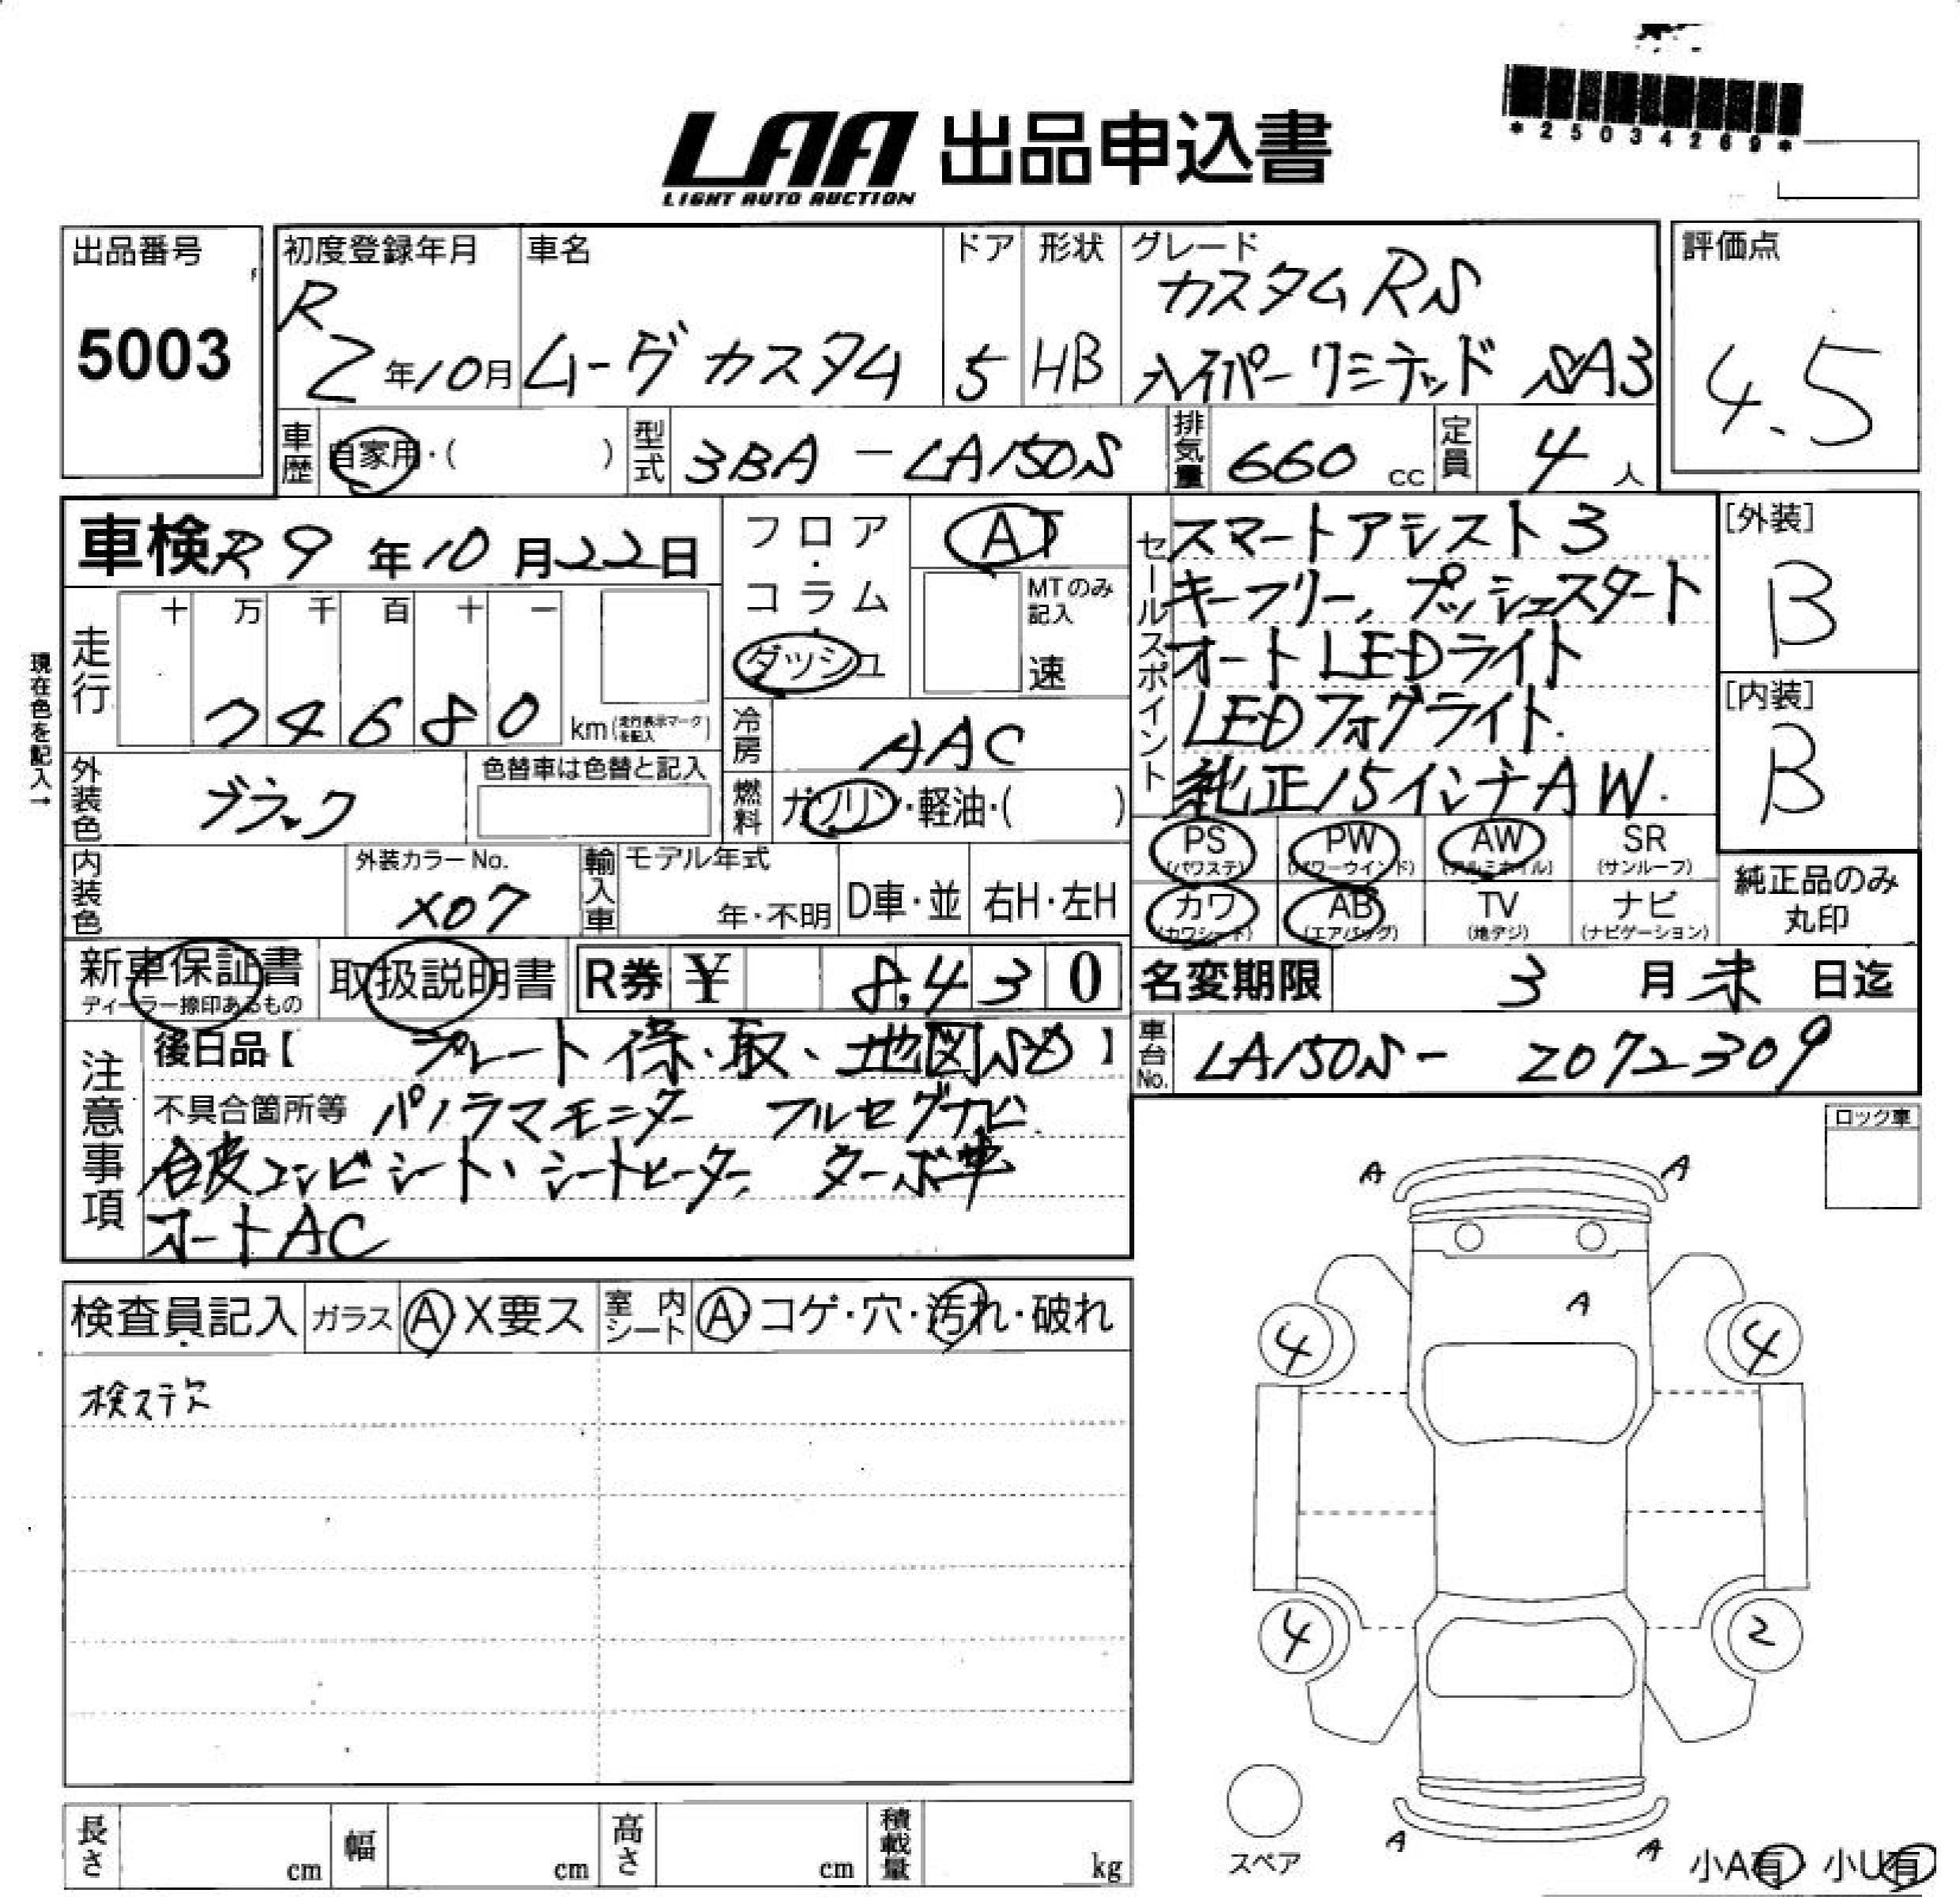 *25034269*
LAA 出品申込書
LIGHT AUTO AUCTION
出品番号
5003
初度登録年月
R 2年10月
車名
ムーヴカスタム
ドア
5
形状
HB
グレード
カスタムRS
ハイパーリミテッド SA3
評価点
4.5
車歴 自家用・( )
型式 3BA-LA150S
排気量 660 cc
定員 4人
車検 R9年10月22日
現在色を記入→
走行
十 万 千 百 十 一
74680 km (走行表示マークを記入)
フロア・コラム・ダッシュ
AT
MTのみ記入
速
冷房 AAC
燃料 ガソリン・軽油・( )
セールスポイント
スマートアシスト3
キーフリー、プッシュスタート
オートLEDライト
LEDフォグライト.
純正15インチAW.
[外装]
B
[内装]
B
外装色 ブラック
色替車は色替と記入
内装色
外装カラーNo.
X07
輸入車
モデル年式
年・不明
D車・並
右H・左H
PS (パワステ)
PW (パワーウインド)
AW (アルミホイル)
SR (サンルーフ)
カワ (カワシート)
AB (エアバッグ)
TV (地デジ)
ナビ (ナビゲーション)
純正品のみ
丸印
新車保証書
ディーラー捺印あるもの
取扱説明書
R券 ¥ 8,430
名変期限 3月末日迄
車台No. LA150S- 2072309
注意事項
後日品【プレート 保・取、地図SD】
不具合箇所等 パノラマモニター フルセグナビ
合皮コンビシート、シートヒーター、ターボ車
オートAC
ロック車
検査員記入
ガラス A X要ス
室内シート A コゲ・穴・汚れ・破れ
検ステ欠
A A
A
4 4
4 2
スペア
A A
小A有 小U有
長さ cm
幅 cm
高さ cm
積載量 kg